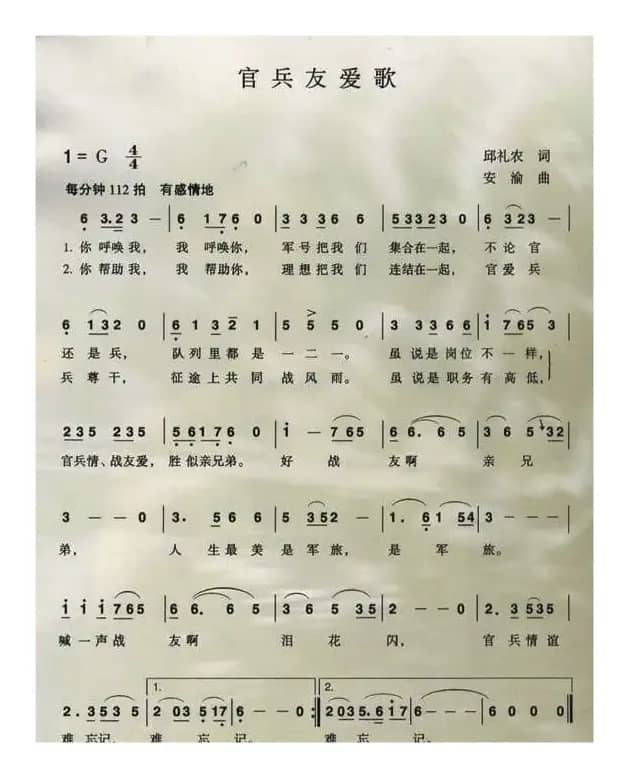 官兵友爱歌
1=G 4/4 邱礼农 词
每分钟112拍 有感情地 安渝 曲
6 3.2 3 — | 6 1 7 6 0 | 3 3 3 6 6 | 5 3 3 3 2 3 0 | 6 3 2 3 |
1. 你呼唤我, 我呼唤你, 军号把我们 集合在一起, 不论官
2. 你帮助我, 我帮助你, 理想把我们 连结在一起, 官爱兵
6 1 3 2 0 | 6 1 3 2 1 | 5 5 5 0 | 3 3 3 6 6 | 1 7 6 5 3 |
还是兵, 队列里都是一二一。 虽说是岗位不一样,
兵尊干, 征途上共同战风雨。 虽说是职务有高低,
2 3 5 2 3 5 | 5 6 1 7 6 0 | 1 — 7 6 5 | 6 6. 6 5 | 3 6 5 3 2 |
官兵情、战友爱, 胜似亲兄弟。 好战友啊 亲兄
3 — — 0 | 3. 5 6 6 | 5 3 5 2 — | 1. 6 1 5 4 | 3 — — — |
弟, 人生最美是军旅, 是军旅。
1 1 1 7 6 5 | 6 6. 6 5 | 3 6 5 3 5 | 2 — — 0 | 2. 3 5 3 5 |
喊一声战友啊 泪花闪, 官兵情谊
1. 2.
2. 3 5 3 5 | 2 0 3 5 1 7 | 6 — — 0 :| 2 0 3 5. 6 1 7 | 6 0 0 0 ‖
难忘记, 难忘记。 难忘记。